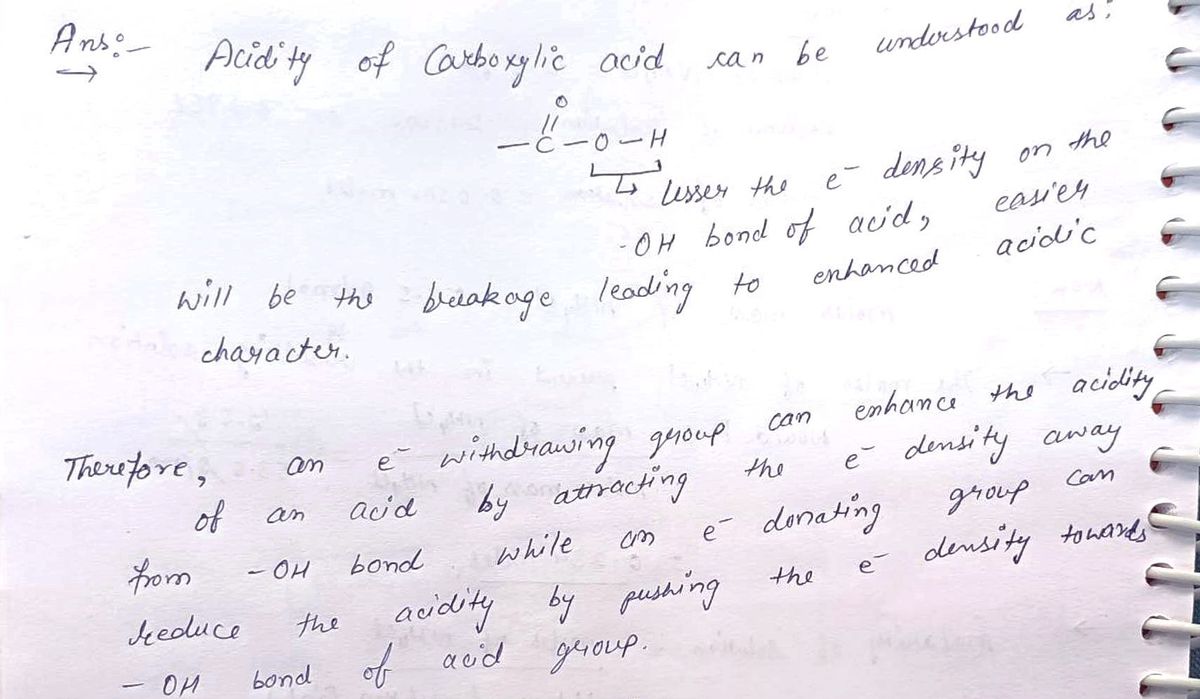 Ans:- Acidity of Carboxylic acid can be understood as:
O
//
-C-O-H
↳ lesser the e⁻ density on the
-OH bond of acid, easier
will be the breakage leading to enhanced acidic
character.
Therefore, an e⁻ withdrawing group can enhance the acidity
of an acid by attracting the e⁻ density away
from -OH bond while an e⁻ donating group can
reduce the acidity by pushing the e⁻ density towards
- OH bond of acid group.